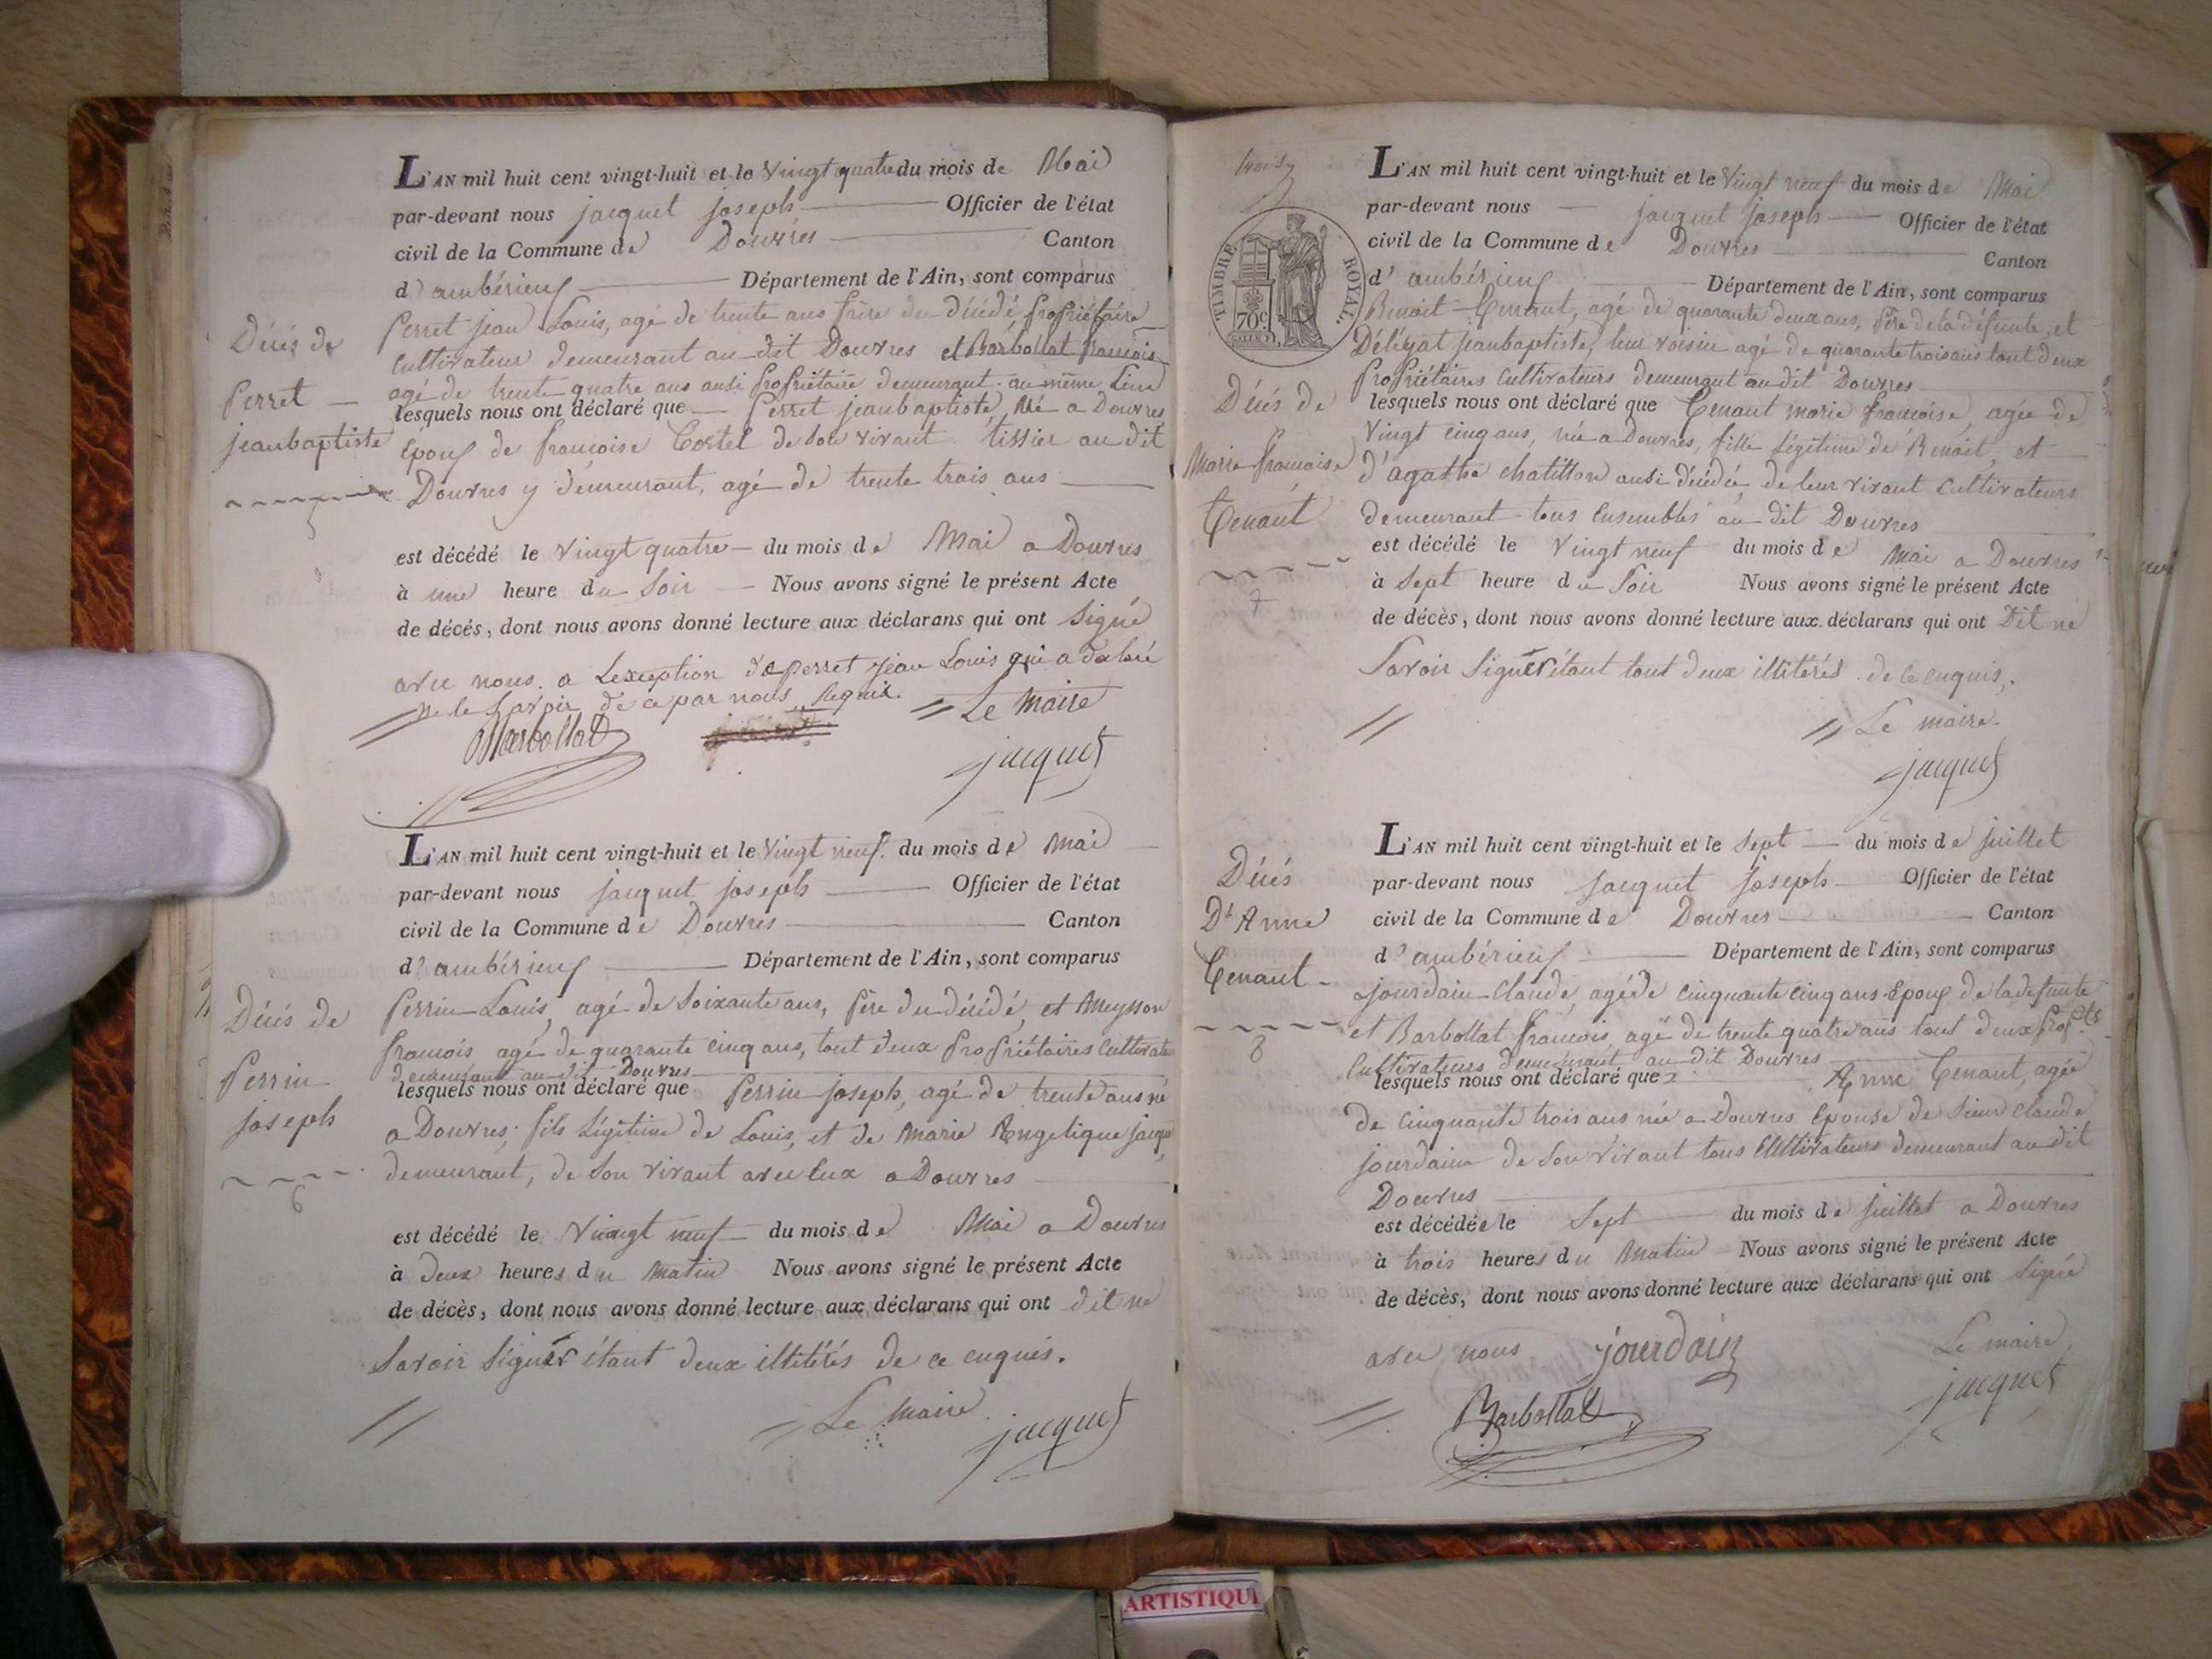 L'AN mil huit cent vingt-huit et le Vingt quatre du mois de Mai
par-devant nous jacquet joseph Officier de l'état
civil de la Commune de Douvres Canton
d'ambérieux Département de l'Ain, sont comparus
Décès de
Perret
jeanbaptiste
5
Perret jean Louis, agé de trente ans frère du décédé, propriétaire
Cultivateur demeurant au dit Douvres et Barbollat francois
agé de trente quatre ans ausi propriétaire demeurant au même Lieu
lesquels nous ont déclaré que Perret jeanbaptiste, Né a Douvres
Epoux de françoise Costel de son vivant tissier au dit
Douvres y demeurant, agé de trente trois ans
est décédé le vingt quatre du mois de Mai a Douvres
à une heure du Soir Nous avons signé le présent Acte
de décès, dont nous avons donné lecture aux déclarans qui ont Signé
avec nous a Lexception de perret jean Louis qui a déclaré
ne le Savoir de ce par nous Requix.
Le Maire
Barbollat
jacquet
L'AN mil huit cent vingt-huit et le Vingt neuf du mois de Mai
par-devant nous jacquet joseph Officier de l'état
civil de la Commune de Douvres Canton
d'ambérieux Département de l'Ain, sont comparus
Décès de
Perrin
joseph
6
Perrin Louis, agé de Soixante ans, Père du décédé, et Meysson
francois agé de quarante cinq ans, tout deux propriétaires Cultivate
demeurant au dit Douvres
lesquels nous ont déclaré que Perrin joseph, agé de trente ans né
a Douvres, fils Légitime de Louis, et de Marie Angelique jacqu
demeurant, de Son vivant avec Eux a Douvres
est décédé le Vingt neuf du mois de Mai a Douvres
à deux heures du Matin Nous avons signé le présent Acte
de décès, dont nous avons donné lecture aux déclarans qui ont dit ne
Savoir Signér étant deux illitérés de ce enquis.
Le Maire
jacquet
TIMBRE ROYAL.
70c
L'AN mil huit cent vingt-huit et le Vingt neuf du mois de Mai
par-devant nous jacquet joseph Officier de l'état
civil de la Commune de Douvres Canton
d'ambérieux Département de l'Ain, sont comparus
Décès de
Marie françoise
Tenant
7
Benoit Tenant, agé de quarante deux ans, Père de la défunte, et
Délégat jeanbaptiste, leur voisin agé de quarante trois ans tout deux
Propriétaires Cultivateurs demeurant au dit Douvres
lesquels nous ont déclaré que Tenant marie françoise, agée de
Vingt cinq ans, née a Douvres, fille Légitime de Benoit, et
d'agathe chatillon ausi décédée, de leur vivant Cultivateurs
demeurant tous Ensembles au dit Douvres
est décédé le Vingt neuf du mois de Mai a Douvres
à Sept heure du Soir Nous avons signé le présent Acte
de décès, dont nous avons donné lecture aux déclarans qui ont Dit ne
Savoir Signér étant tout deux illitérés de ce enquis.
Le maire
jacquet
L'AN mil huit cent vingt-huit et le Sept du mois de juillet
par-devant nous Jacquet Joseph Officier de l'état
civil de la Commune de Douvres Canton
d'ambérieux Département de l'Ain, sont comparus
Décès
Dt Anne
Tenant
8
jourdain Claude, agé de Cinquante Cinq ans Epoux de la defunte
et Barbollat francois, agé de trente quatre ans tout deux prop.ts
Cultivateurs demeurant au dit Douvres
lesquels nous ont déclaré que Anne Tenant, agée
de Cinquante trois ans née a Douvres Epouse de Sieur Claude
jourdain de Son vivant tous Cultivateurs demeurant au dit
Douvres
est décédée le Sept du mois de juillet a Douvres
à trois heures du Matin Nous avons signé le présent Acte
de décès, dont nous avons donné lecture aux déclarans qui ont Signé
avec nous jourdain Le maire
Barbollat jacquet
ARTISTIQU